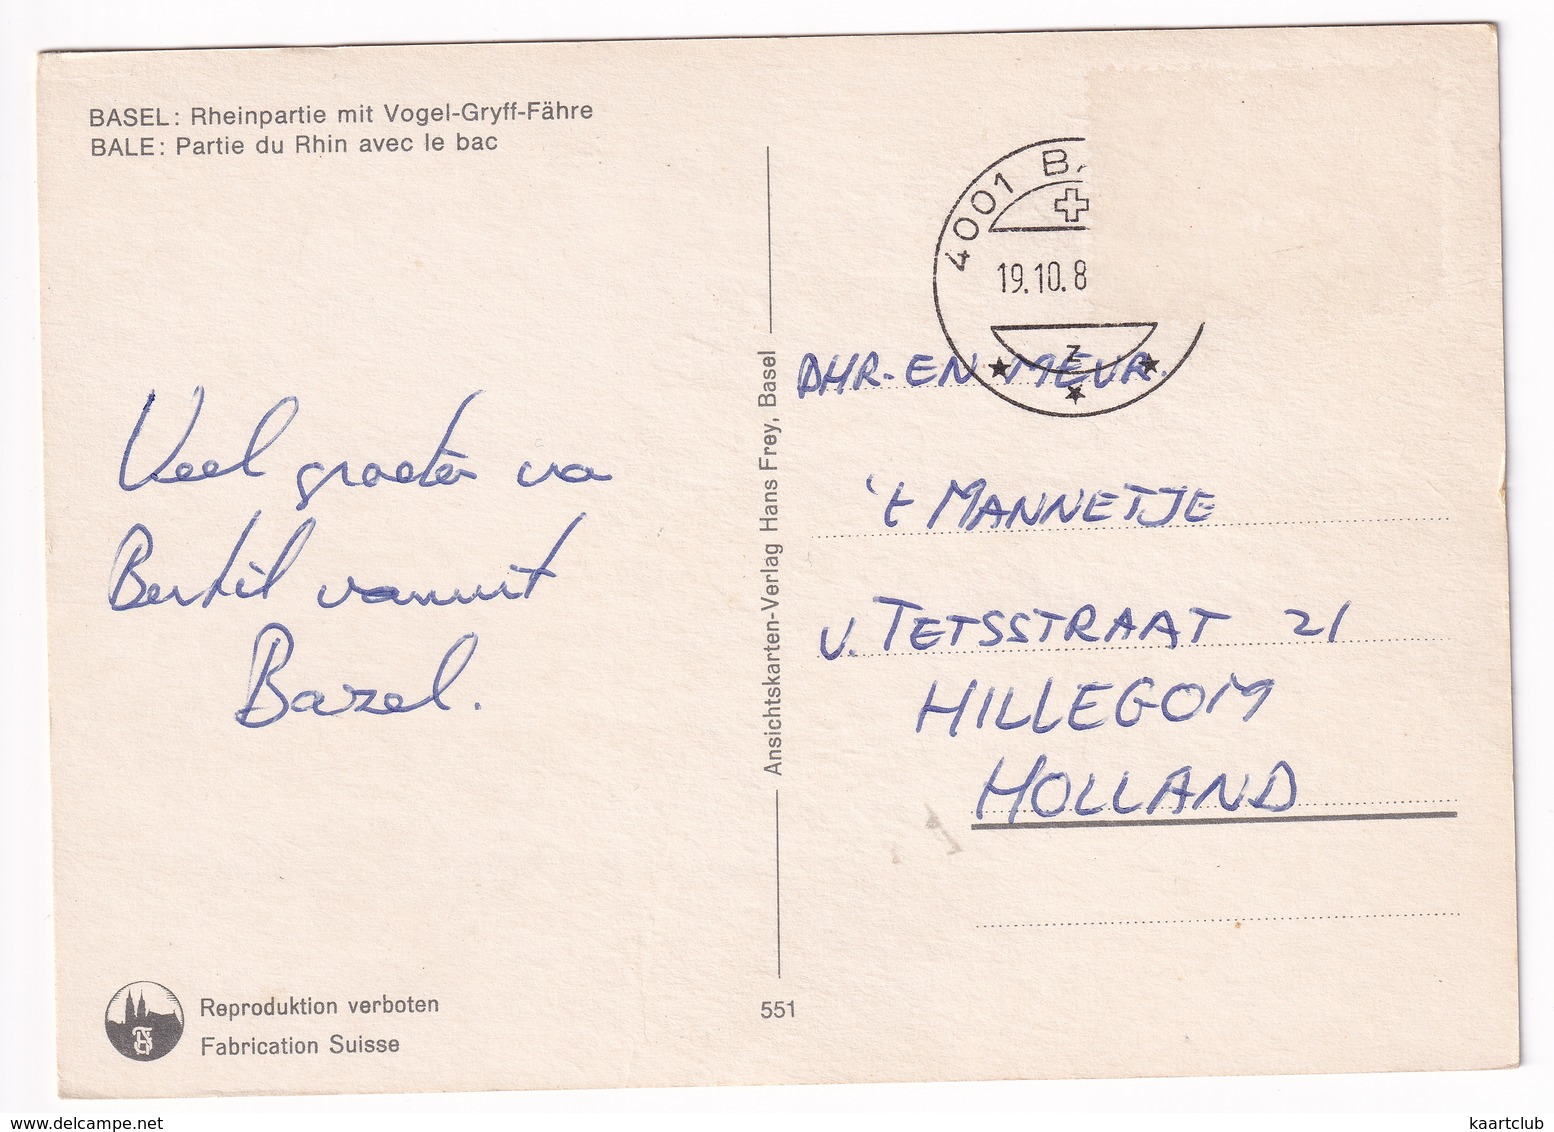 BASEL: Rheinpartie mit Vogel-Gryff-Fähre
BALE: Partie du Rhin avec le bac
4001 BA
19.10.8
Z
Veel groeten va
Bertil vanuit
Bazel.
Ansichtskarten-Verlag Hans Frey, Basel
DHR.-EN MEVR.
't MANNETJE
V. TETSSTRAAT 21
HILLEGOM
HOLLAND
Reproduktion verboten
Fabrication Suisse
551
www.delcampe.net
kaartclub